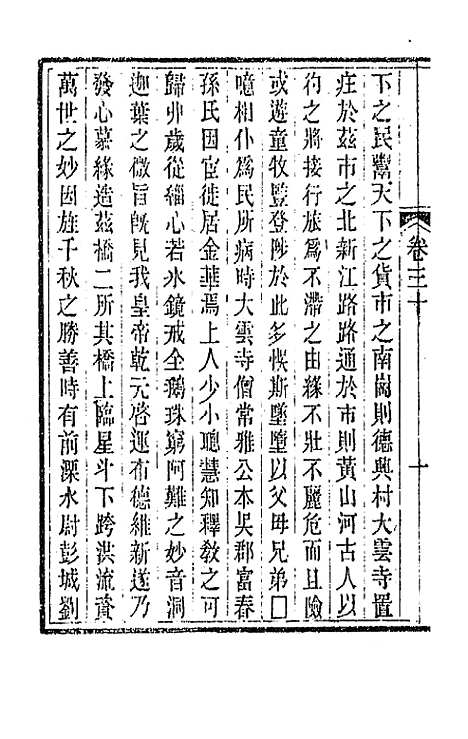 卷三十
十
下之民鬻天下之貨市之南崗則德興村大雲寺置
莊於茲市之北新江路路通於市則黃山河古人以
彴之將接行旅爲不滯之由緣不壯不麗危而且險
或遊童牧豎登陟於此多悞斯墜墮以父毋兄弟□
噫相仆爲民所病時大雲寺僧常雅公本吳郡富春
孫氏因宦徙居金華焉上人少小聰慧知釋教之可
歸丱歲從緇心若氷鏡戒全鵝珠窮阿難之妙音洞
迦葉之微旨旣見我皇帝乾元啓運布德維新遂乃
發心慕緣造茲橋二所其橋上臨星斗下跨洪流資
萬世之妙因旌千秋之勝善時有前溧水尉彭城劉